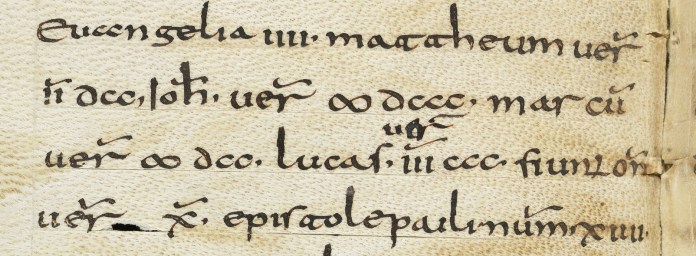 Euangelia iiii. mattheum uer̄
īī dcc. Ioh̄. uer̄ ∞ dccc. marcū
uer̄
uer̄ ∞ dcc. lucas. īīī ccc. fiunt om̄
uer̄ x̄. epistole pauli. num̄. xiiii.